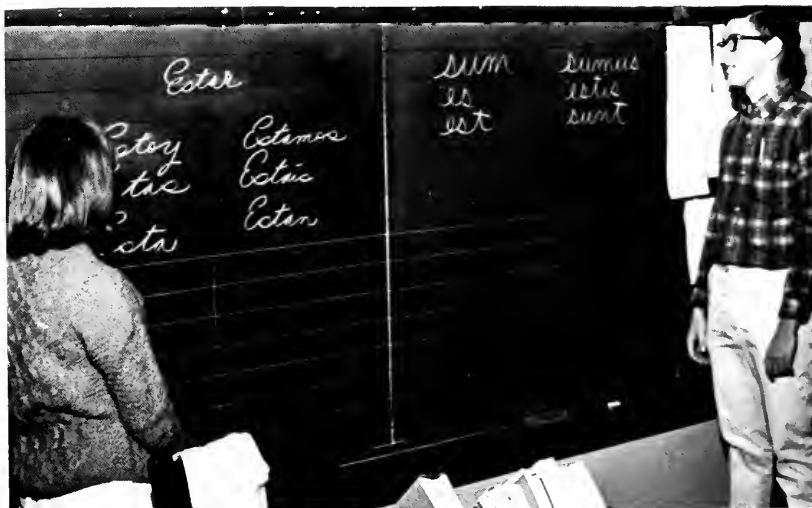 Estar
Estoy Estamos
Estas Estais
Esta Estan
sum sumus
es estis
est sunt